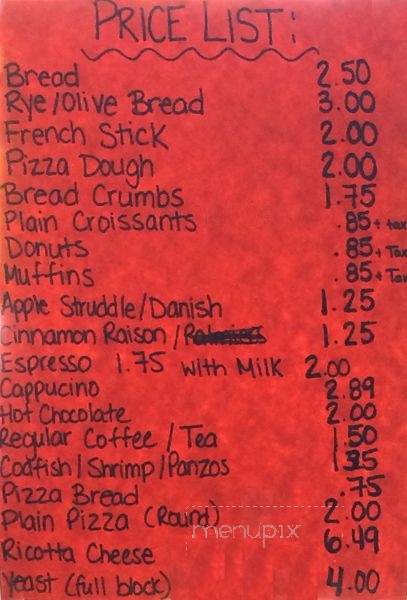 PRICE LIST:
Bread 2.50
Rye/Olive Bread 3.00
French Stick 2.00
Pizza Dough 2.00
Bread Crumbs 1.75
Plain Croissants .85 + tax
Donuts .85 + Tax
Muffins .85 + Tax
Apple Struddle/Danish 1.25
Cinnamon Raison / 1.25
Espresso 1.75 with Milk 2.00
Cappucino 2.89
Hot Chocolate 2.00
Regular Coffee / Tea 1.50
Codfish/Shrimp/Panzos
Pizza Bread .75
Plain Pizza (Round) 2.00
menupix
Ricotta Cheese 6.49
Yeast (full block) 4.00